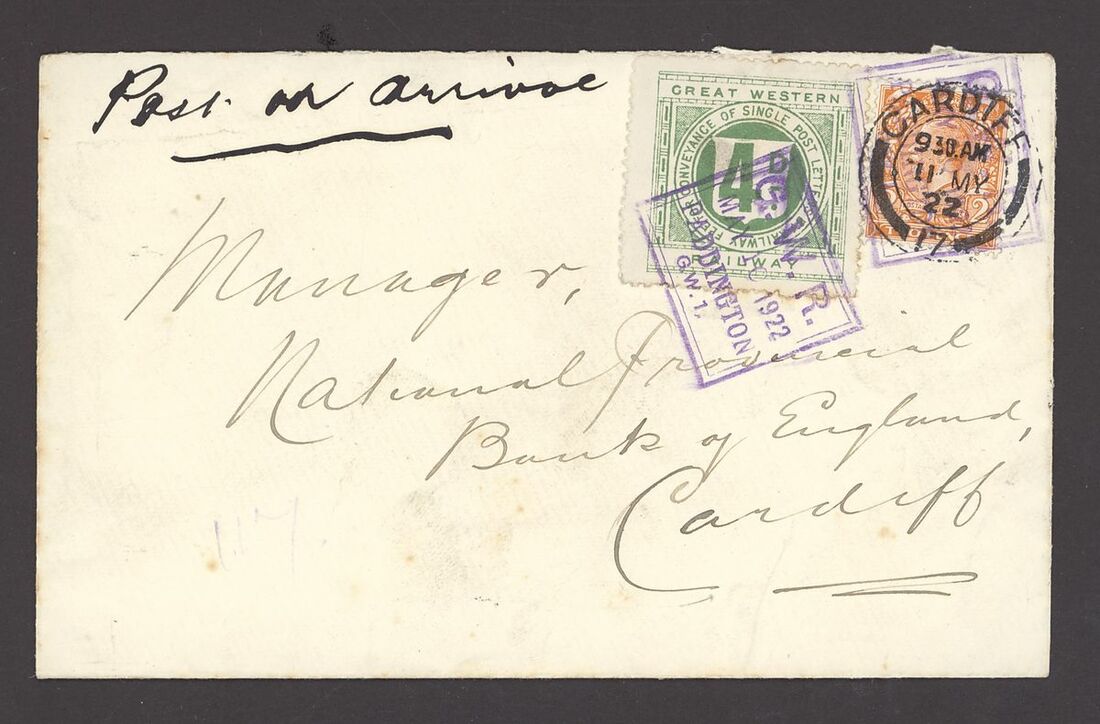 Post on arrival
GREAT WESTERN
FEE FOR CONVEYANCE OF SINGLE POST LETTERS BY RAILWAY
4D
RAILWAY
G.W.R.
MAY 10 1922
PADDINGTON
G.W.1.
CARDIFF
930.AM
11 MY
22
17
2
Manager,
National Provincial
Bank of England,
Cardiff